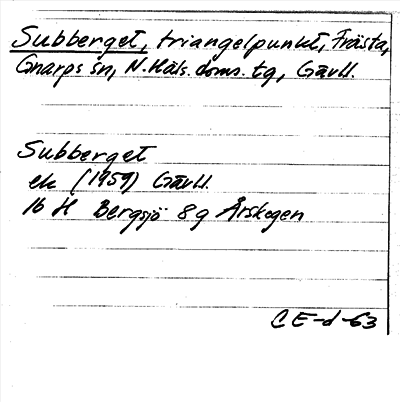 Subberget, triangelpunkt, Frästa,
Gnarps sn, N. Häls. doms. tg, Gävll.
Subberget
ek (1959) Gävll.
16 H Bergsjö 8g Årskogen
CE-d-63